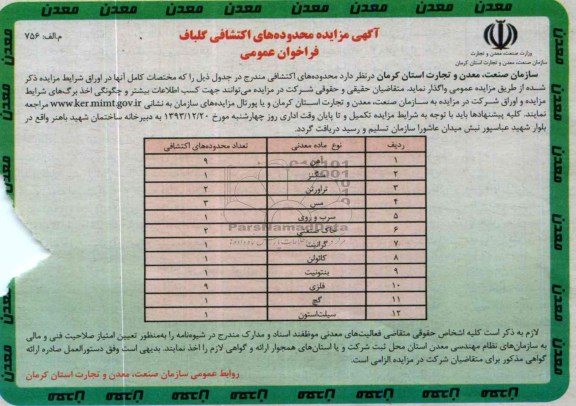 م.الف: ۷۵۶
آگهی مزایده محدوده‌های اکتشافی گلباف
فراخوان عمومی
وزارت صنعت، معدن و تجارت
سازمان صنعت، معدن و تجارت استان کرمان
سازمان صنعت، معدن و تجارت استان کرمان درنظر دارد محدوده‌های اکتشافی مندرج در جدول ذیل را که مختصات کامل آنها در اوراق شرایط مزایده ذکر
شده از طریق مزایده عمومی واگذار نماید. متقاضیان حقیقی و حقوقی شرکت در مزایده می‌توانند جهت کسب اطلاعات بیشتر و چگونگی اخذ برگ‌های شرایط
مزایده و اوراق شرکت در مزایده به سازمان صنعت، معدن و تجارت استان کرمان و یا پورتال مزایده‌های سازمان به نشانی www.ker.mimt.gov.ir مراجعه
نمایند. کلیه پیشنهادها باید با توجه به شرایط مزایده تکمیل و تا پایان وقت اداری روز چهارشنبه مورخ ۱۳۹۳/۱۲/۲۰ به دبیرخانه ساختمان شهید باهنر واقع در
بلوار شهید عباسپور نبش میدان عاشورا سازمان تسلیم و رسید دریافت گردد.
ردیف نوع ماده معدنی تعداد محدوده‌های اکتشافی
۱ آهن ۹
۲ ۱
۳ تراورتن ۲
۴ مس ۳
۵ سرب و روی ۱
۶ خاک صنعتی ۲
۷ گرانیت ۱
۸ کائولن ۱
۹ بنتونیت ۱
۱۰ فلزی ۹
۱۱ گچ ۱
۱۲ سیلت‌استون ۱
ParsNamadData
لازم به ذکر است کلیه اشخاص حقوقی متقاضی فعالیت‌های معدنی موظفند اسناد و مدارک مندرج در شیوه‌نامه را به‌منظور تعیین امتیاز صلاحیت فنی و مالی
به سازمان‌های نظام مهندسی معدن استان محل ثبت شرکت و یا استان‌های همجوار ارائه و گواهی لازم را اخذ نمایند. بدیهی است وفق دستورالعمل صادره ارائه
گواهی مذکور برای متقاضیان شرکت در مزایده الزامی است.
روابط عمومی سازمان صنعت، معدن و تجارت استان کرمان